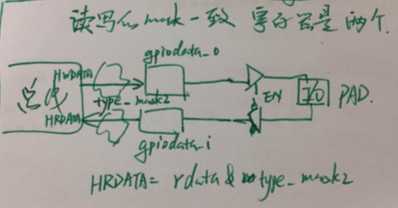 读写的mask一致 寄存器是两个.
gpiodata_o
HWDATA
总线
type_mask2
EN
I/O
PAD.
HRDATA
gpiodata_i
HRDATA = rdata & type_mask2